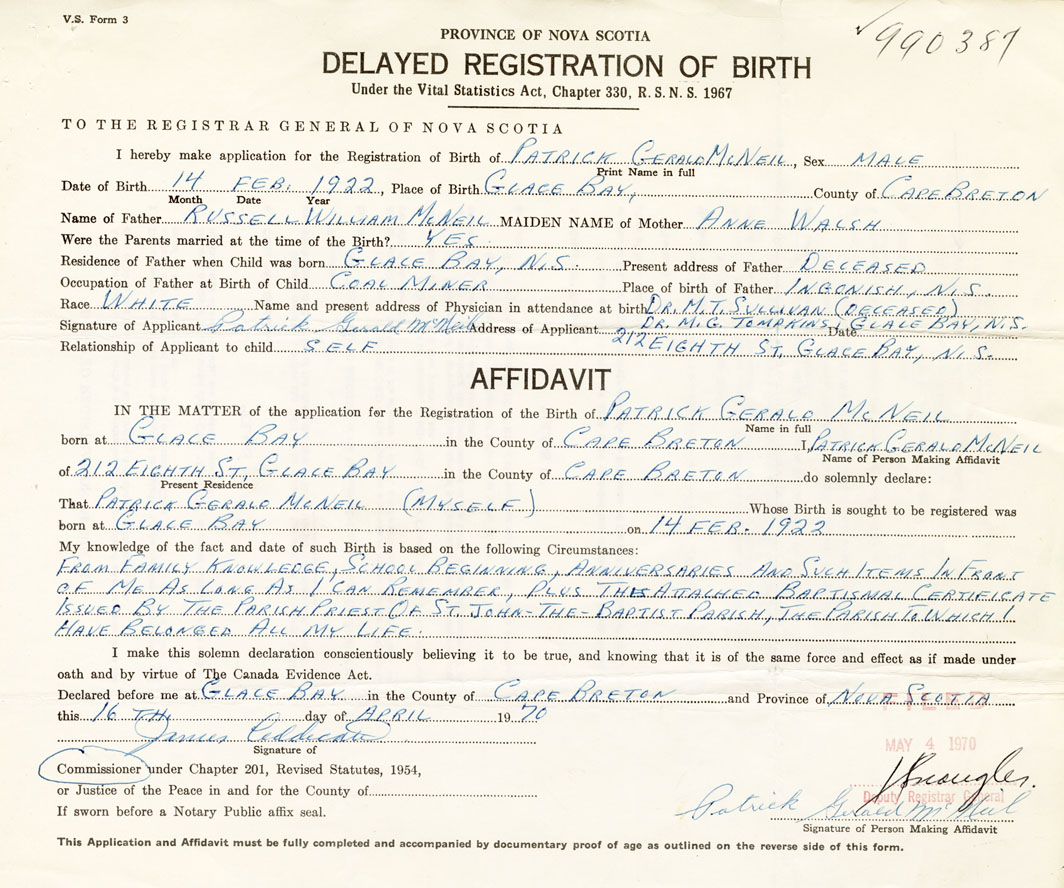 V.S. Form 3
990387
PROVINCE OF NOVA SCOTIA
DELAYED REGISTRATION OF BIRTH
Under the Vital Statistics Act, Chapter 330, R. S. N. S. 1967
TO THE REGISTRAR GENERAL OF NOVA SCOTIA
I hereby make application for the Registration of Birth of PATRICK GERALD MCNEIL, Sex MALE
Print Name in full
Date of Birth 14 FEB. 1922, Place of Birth GLACE BAY, County of CAPE BRETON
Month Date Year
Name of Father RUSSELL WILLIAM MCNEIL MAIDEN NAME of Mother ANNE WALSH
Were the Parents married at the time of the Birth? YES
Residence of Father when Child was born GLACE BAY, N.S. Present address of Father DECEASED
Occupation of Father at Birth of Child COAL MINER Place of birth of Father INGONISH, N.S.
Race WHITE Name and present address of Physician in attendance at birth DR. M.T. SULLIVAN (DECEASED)
DR. M.G. TOMPKINS, GLACE BAY, N.S.
Signature of Applicant Patrick Gerald McNeil Address of Applicant Date
212 EIGHTH ST. GLACE BAY, N.S.
Relationship of Applicant to child SELF
AFFIDAVIT
IN THE MATTER of the application for the Registration of the Birth of PATRICK GERALD MCNEIL
Name in full
born at GLACE BAY in the County of CAPE BRETON I, PATRICK GERALD MCNEIL
Name of Person Making Affidavit
of 212 EIGHTH ST., GLACE BAY in the County of CAPE BRETON do solemnly declare:
Present Residence
That PATRICK GERALD MCNEIL (MYSELF) Whose Birth is sought to be registered was
born at GLACE BAY on 14 FEB. 1922
My knowledge of the fact and date of such Birth is based on the following Circumstances:
FROM FAMILY KNOWLEDGE, SCHOOL BEGINNING, ANNIVERSARIES AND SUCH ITEMS IN FRONT
OF ME AS LONG AS I CAN REMEMBER, PLUS THE ATTACHED BAPTISMAL CERTIFICATE
ISSUED BY THE PARISH PRIEST OF ST. JOHN-THE-BAPTIST PARISH, THE PARISH TO WHICH I
HAVE BELONGED ALL MY LIFE.
I make this solemn declaration conscientiously believing it to be true, and knowing that it is of the same force and effect as if made under
oath and by virtue of The Canada Evidence Act.
Declared before me at GLACE BAY in the County of CAPE BRETON and Province of NOVA SCOTIA
this 16 TH. day of APRIL 19 70
FILED
James
Signature of
MAY 4 1970
Commissioner under Chapter 201, Revised Statutes, 1954,
or Justice of the Peace in and for the County of
Deputy Registrar General
If sworn before a Notary Public affix seal.
Patrick Gerald McNeil
Signature of Person Making Affidavit
This Application and Affidavit must be fully completed and accompanied by documentary proof of age as outlined on the reverse side of this form.